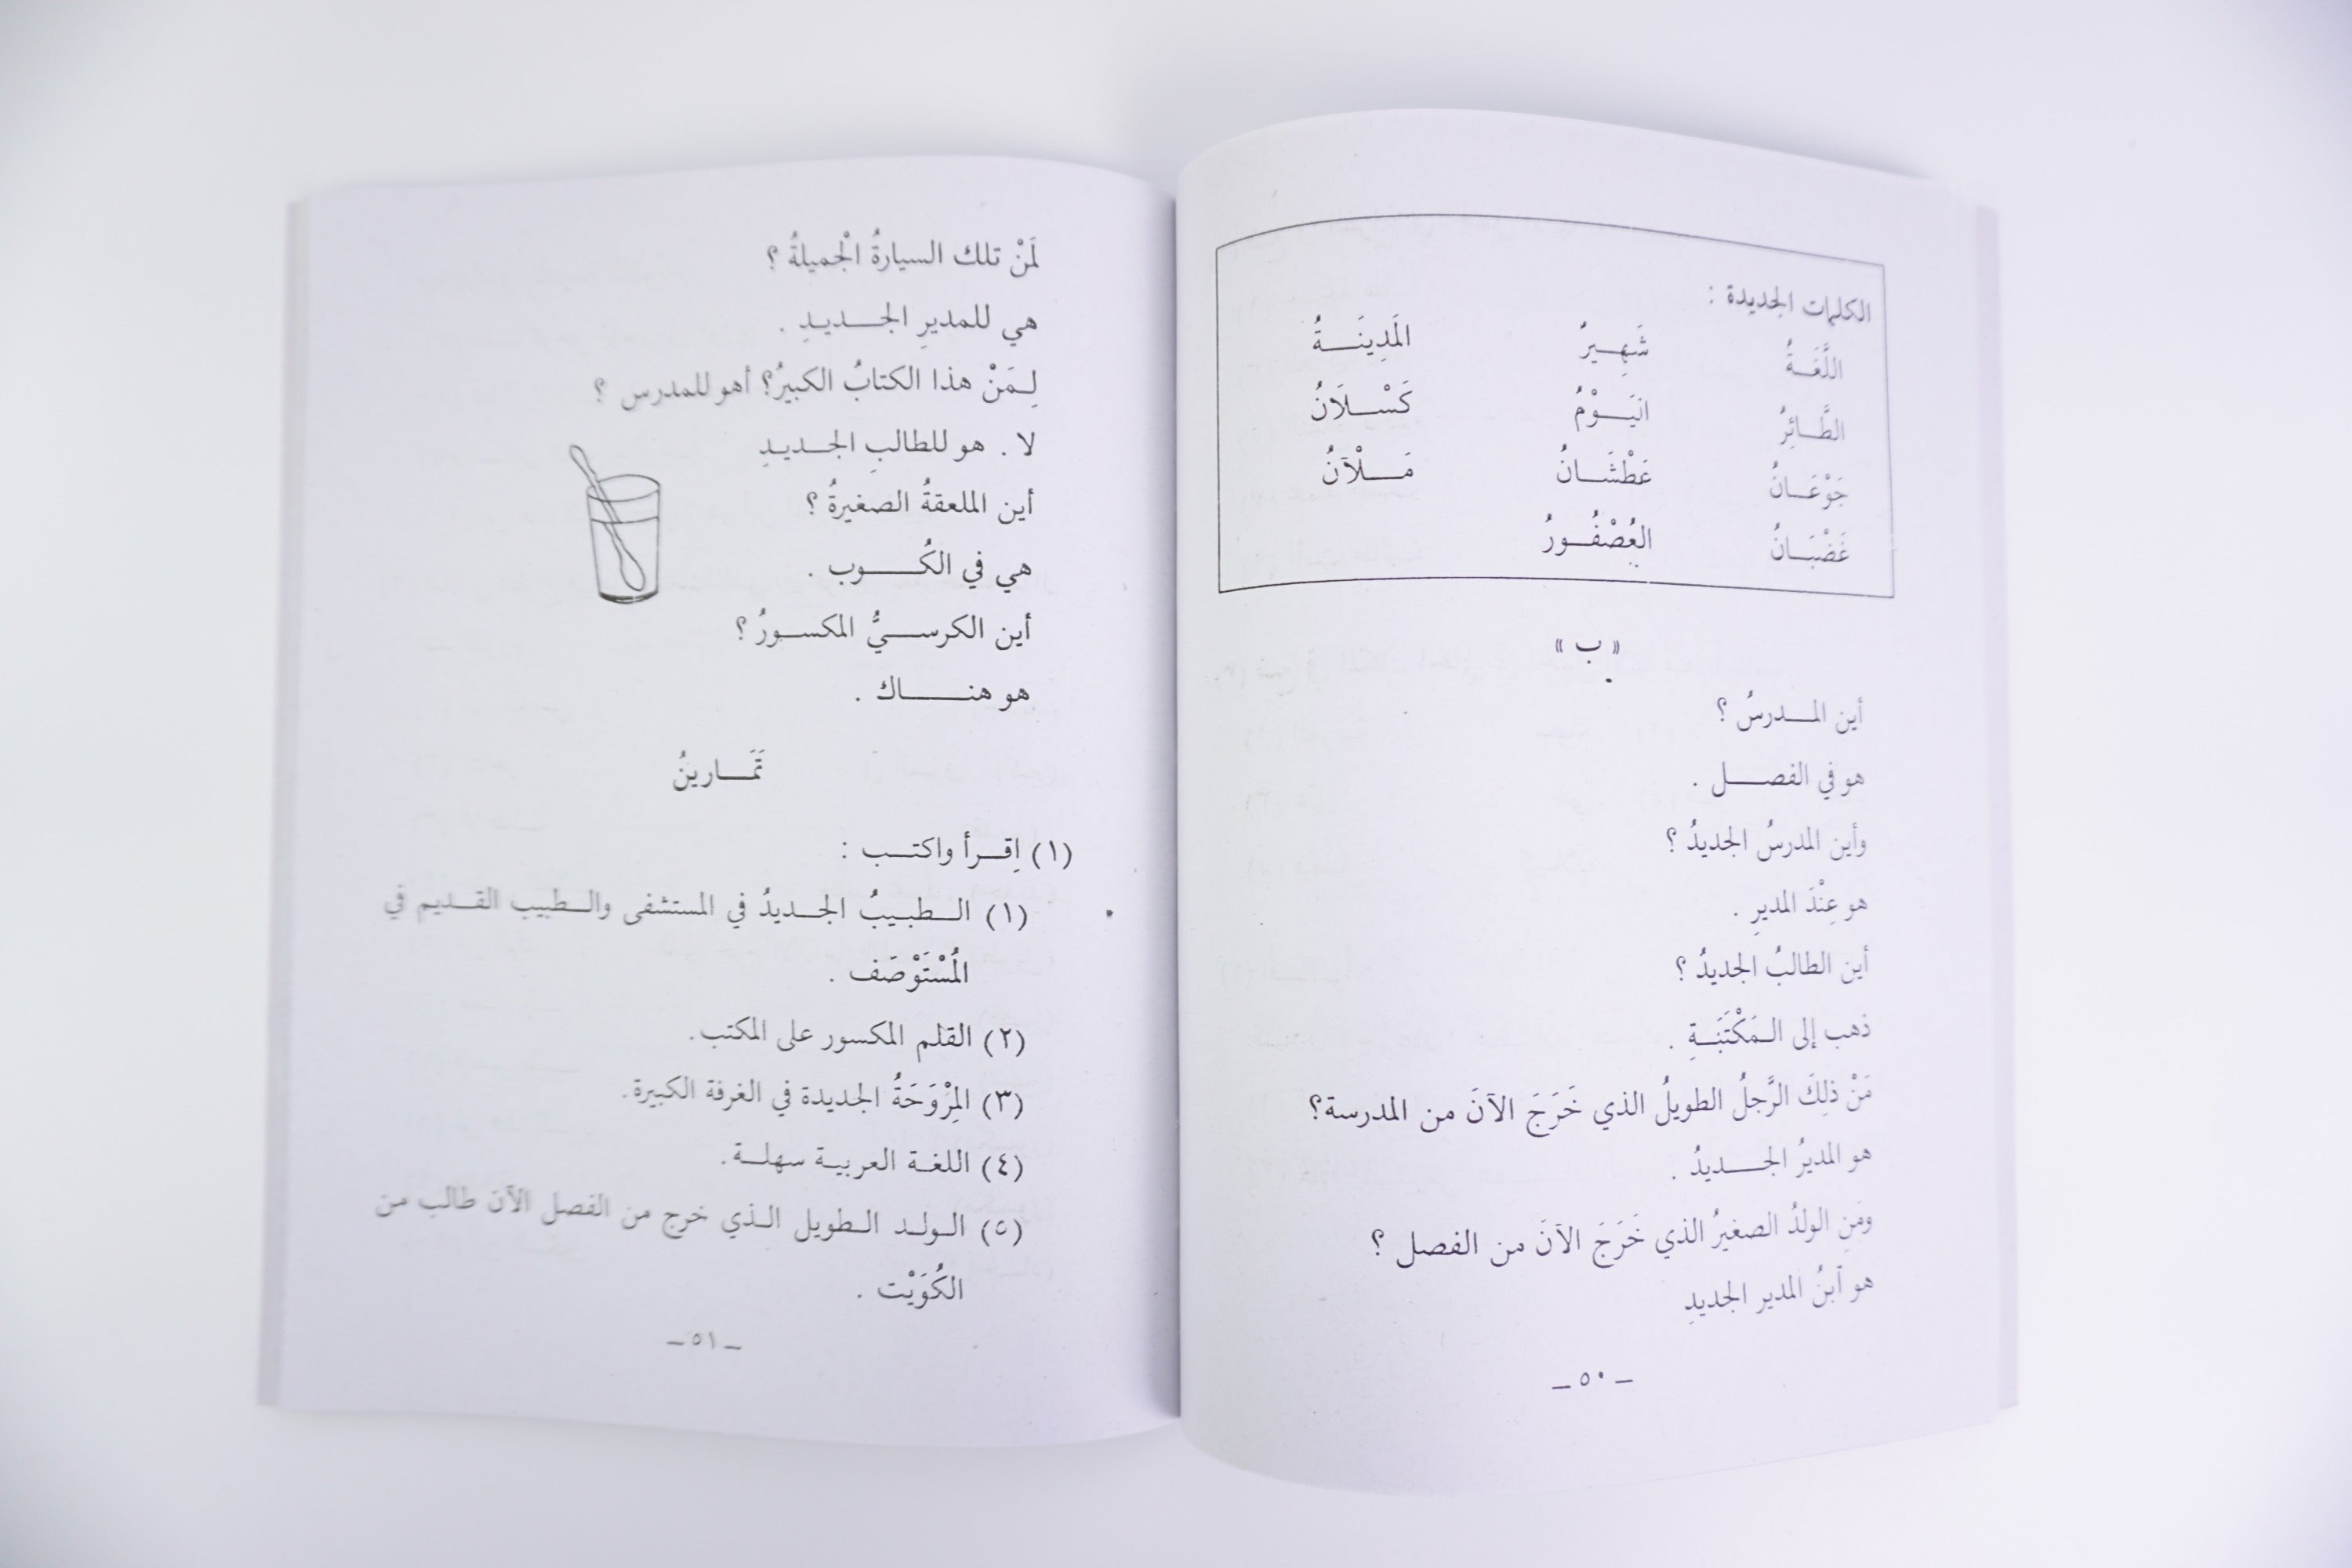 الكلمات الجديدة :
اللُّغَـــةُ شَهِـــيرٌ المَدِينَـــةُ
الطَّـــائِرُ اليَـــوْمُ كَسْـــلَانُ
جَوْعَـــانُ عَطْشَـــانُ مَـــلْآنُ
غَضْبَـــانُ العُصْفُـــورُ
« ب »
أين المـــدرسُ ؟
هو في الفصـــل .
وأين المدرسُ الجديدُ ؟
هو عِنْدَ المديرِ .
أين الطالبُ الجديدُ ؟
ذهب إلى المَكْتَبَـــةِ .
مَنْ ذلِكَ الرَّجلُ الطويلُ الذي خَرَجَ الآنَ من المدرسة؟
هو المديرُ الجـــديدُ .
ومَنِ الولدُ الصغيرُ الذي خَرَجَ الآنَ من الفصل ؟
هو ٱبنُ المدير الجديدِ
– ٥٠ –
لِمَنْ تلك السيارةُ الْجميلةُ ؟
هي للمديرِ الجـــديـدِ .
لِـمَنْ هذا الكتابُ الكبيرُ؟ أهو للمدرس ؟
لا . هو للطالبِ الجـــديـدِ
أين الملعقةُ الصغيرةُ ؟
هي في الكُـــوب .
أين الكرســـيُّ المكســـورُ ؟
هو هنـــاك .
تَمَـــارينُ
(١) اِقـــرأ واكتـــب :
(١) الـــطبـيبُ الجـــديدُ في المستشفى والـــطبيب القـــديم في
المُسْتَوْصَف .
(٢) القلم المكسور على المكتب.
(٣) المِرْوَحَةُ الجديدة في الغرفة الكبيرة.
(٤) اللغـة العربيـة سهلـــة.
(٥) الـولـد الـطويل الـذي خرج من الفصل الآن طالب من
الكُوَيْت .
– ٥١ –